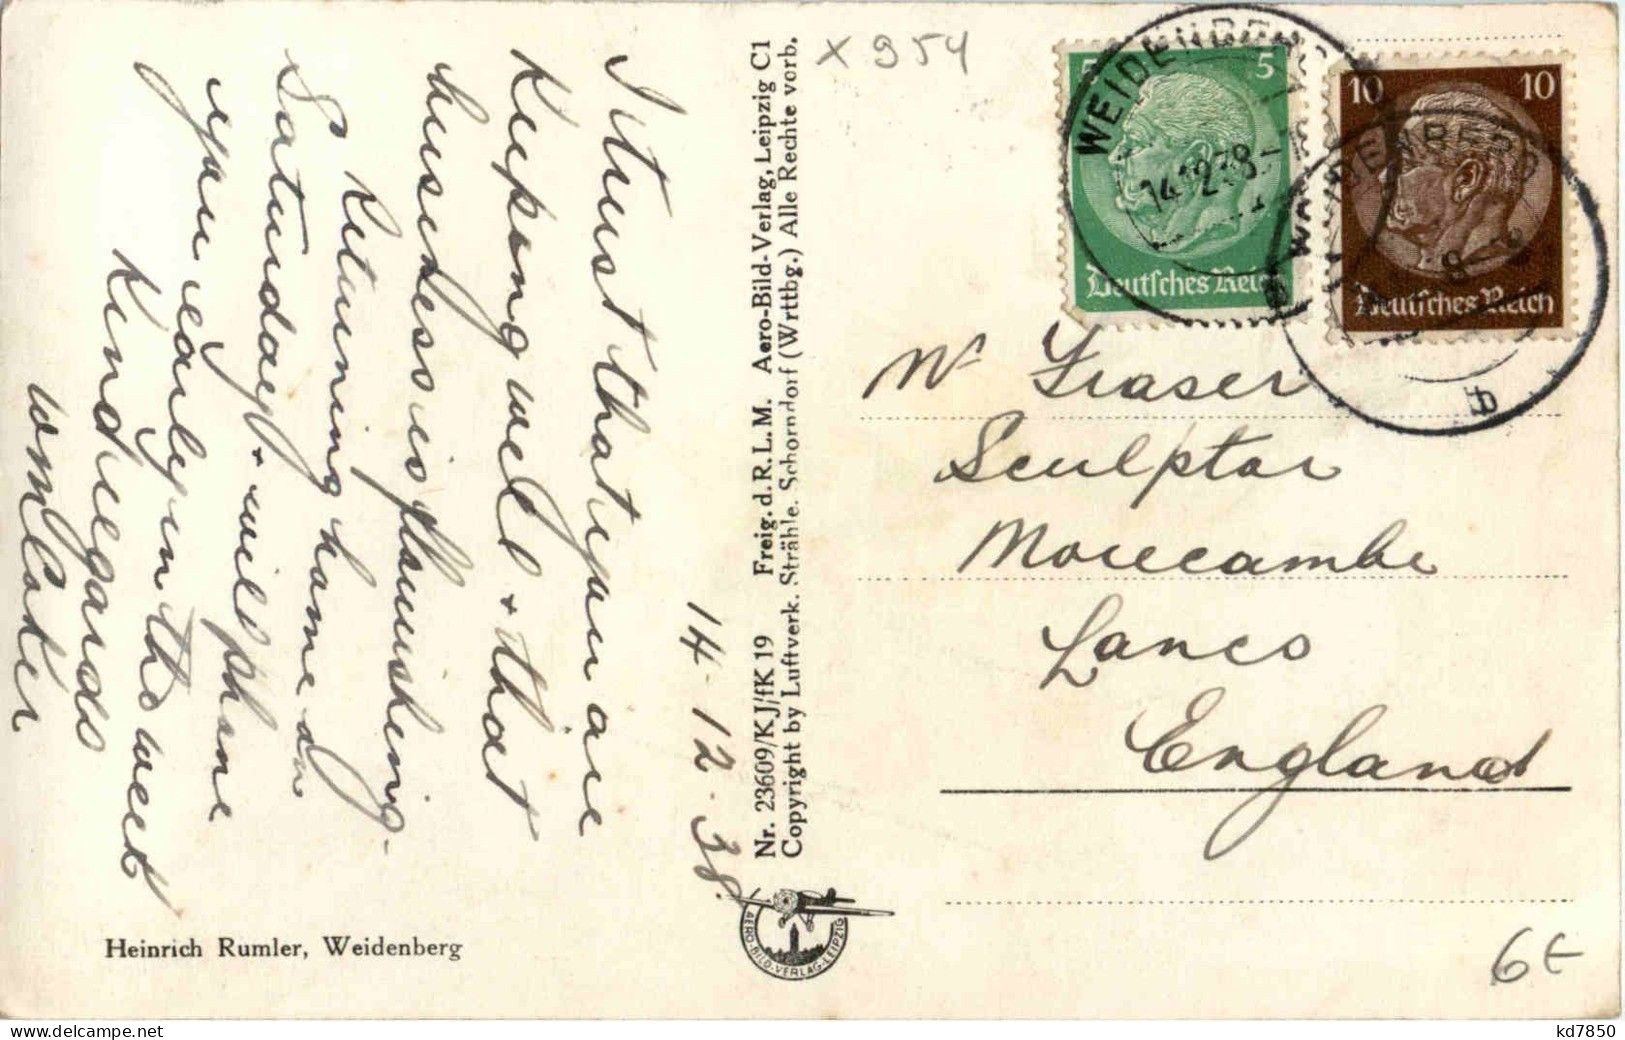 I trust that you are
Keeping well & that
business is flourishing.
Returning home on
Saturday & will phone
you early in the week
Kind regards
14.12.38.
Nr. 23609/KJ/fK 19 Freig. d. R. L. M. Aero-Bild-Verlag, Leipzig C1
Copyright by Luftverk. Strähle. Schorndorf (Wrttbg.) Alle Rechte vorb.
AERO-BILD-VERLAG-LEIPZIG
Heinrich Rumler, Weidenberg
x 954
5
Deutsches Reich
10
10
Deutsches Reich
WEIDENBERG
14.12.38
WEIDENBERG
b
Mr Fraser
Sculptor
Morecambe
Lancs
England
6€
kd7850